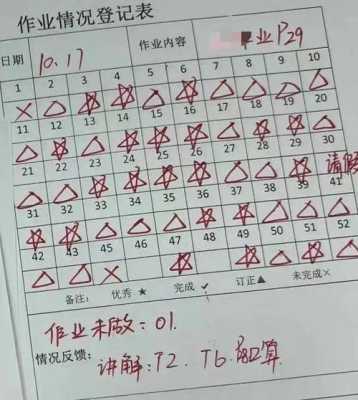 作业情况登记表
日期 10.17 作业内容 业P29
1 2 3 4 5 6 7 8 9 10
× △ ☆ ☆ △ ☆ △ △ △ △
11 12 13 14 15 16 17 18 19 20
△ ☆ △ △ ☆ ☆ △ ☆ ☆ △
21 22 23 24 25 26 27 28 29 30
△ △ ☆ ☆ ☆ ☆ △ △ ☆ 请假
31 32 33 34 35 36 37 38 39 41
☆ ☆ △ △ △ ☆ △ △ △ △
42 43 45 46 47 48 49 50 51 52
△ △ × ☆ ☆ △ ☆ △
备注: 优秀 ★ 完成 ✓ 订正▲ 未完成×
作业未做:01.
情况反馈: 讲解:P2. T6.